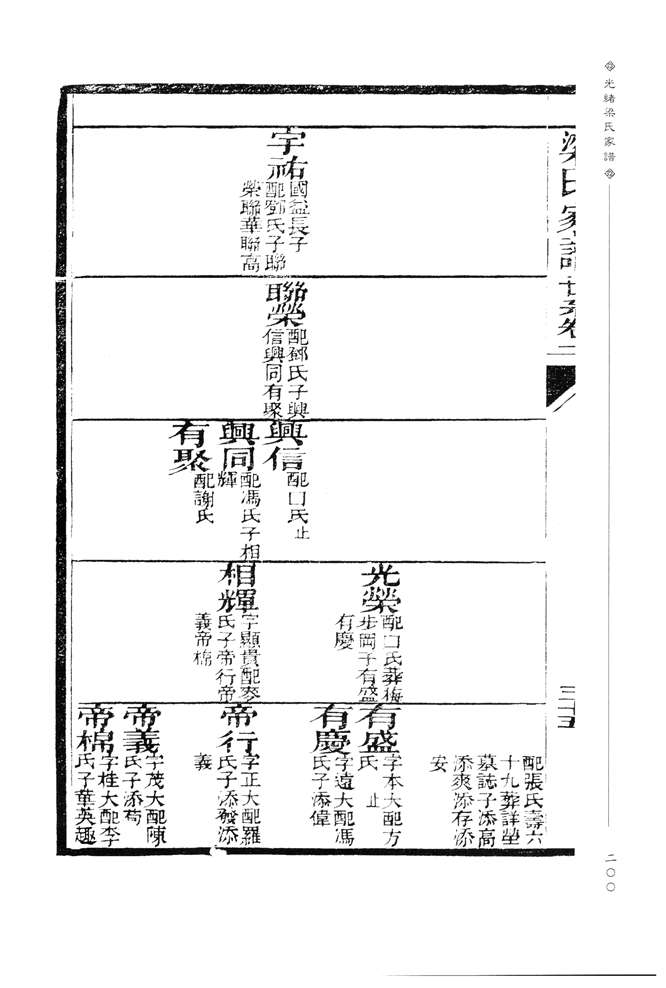 光緒梁氏家譜
二〇〇
梁氏家譜世系卷二
三十五
宇祐
國益長子
配鄧氏子聯
榮聯華聯高
聯榮
配鄧氏子興
信興同有聚
興信
配口氏止
興同
配馮氏子相
輝
有聚
配謝氏
光榮
配口氏葬梅
步岡子有盛
有慶
相輝
字顯貴配麥
氏子帝行帝
義帝棉
配張氏壽六
十九葬詳塋
墓誌子添高
添爽添存添
安
有盛
字本大配方
氏止
有慶
字遠大配馮
氏子添偉
帝行
字正大配羅
氏子添發添
義
帝義
字茂大配陳
氏子添苟
帝棉
字桂大配李
氏子華英趣